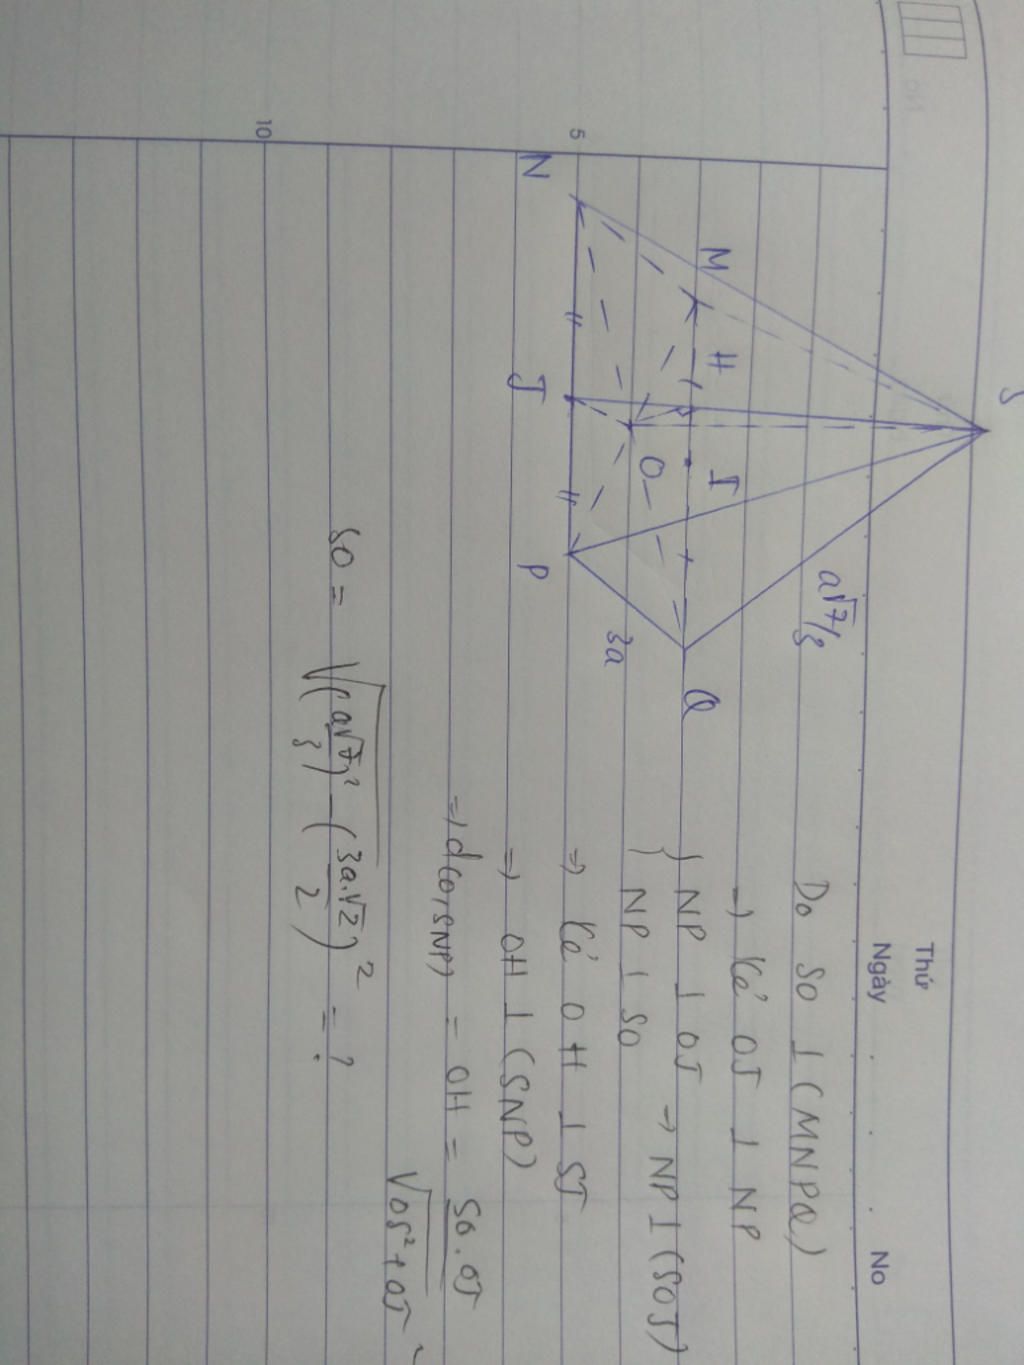 Thứ
Ngày
No
S
a√7/3
M
H
I
Q
O
3a
N
J
P
5
10
Do SO ⊥ (MNPQ)
→ Kẻ OJ ⊥ NP
{ NP ⊥ OJ → NP ⊥ (SOJ)
NP ⊥ SO
⇒ Kẻ OH ⊥ SJ
⇒ OH ⊥ (SNP)
⇒ d(O,SNP) = OH = SO.OJ / √OS²+OJ²
SO = √(a√7/3)² - (3a.√2/2)² = ?